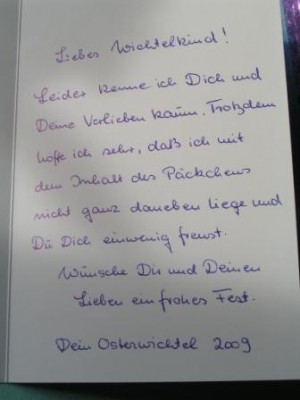 Liebes Wichtelkind!
Leider kenne ich Dich und
Deine Vorlieben kaum. Trotzdem
hoffe ich sehr, daß ich mit
dem Inhalt des Päckchens
nicht ganz daneben liege und
Du Dich einwenig freust.
Wünsche Dir und Deinen
Lieben ein frohes Fest.
Dein Osterwichtel 2009